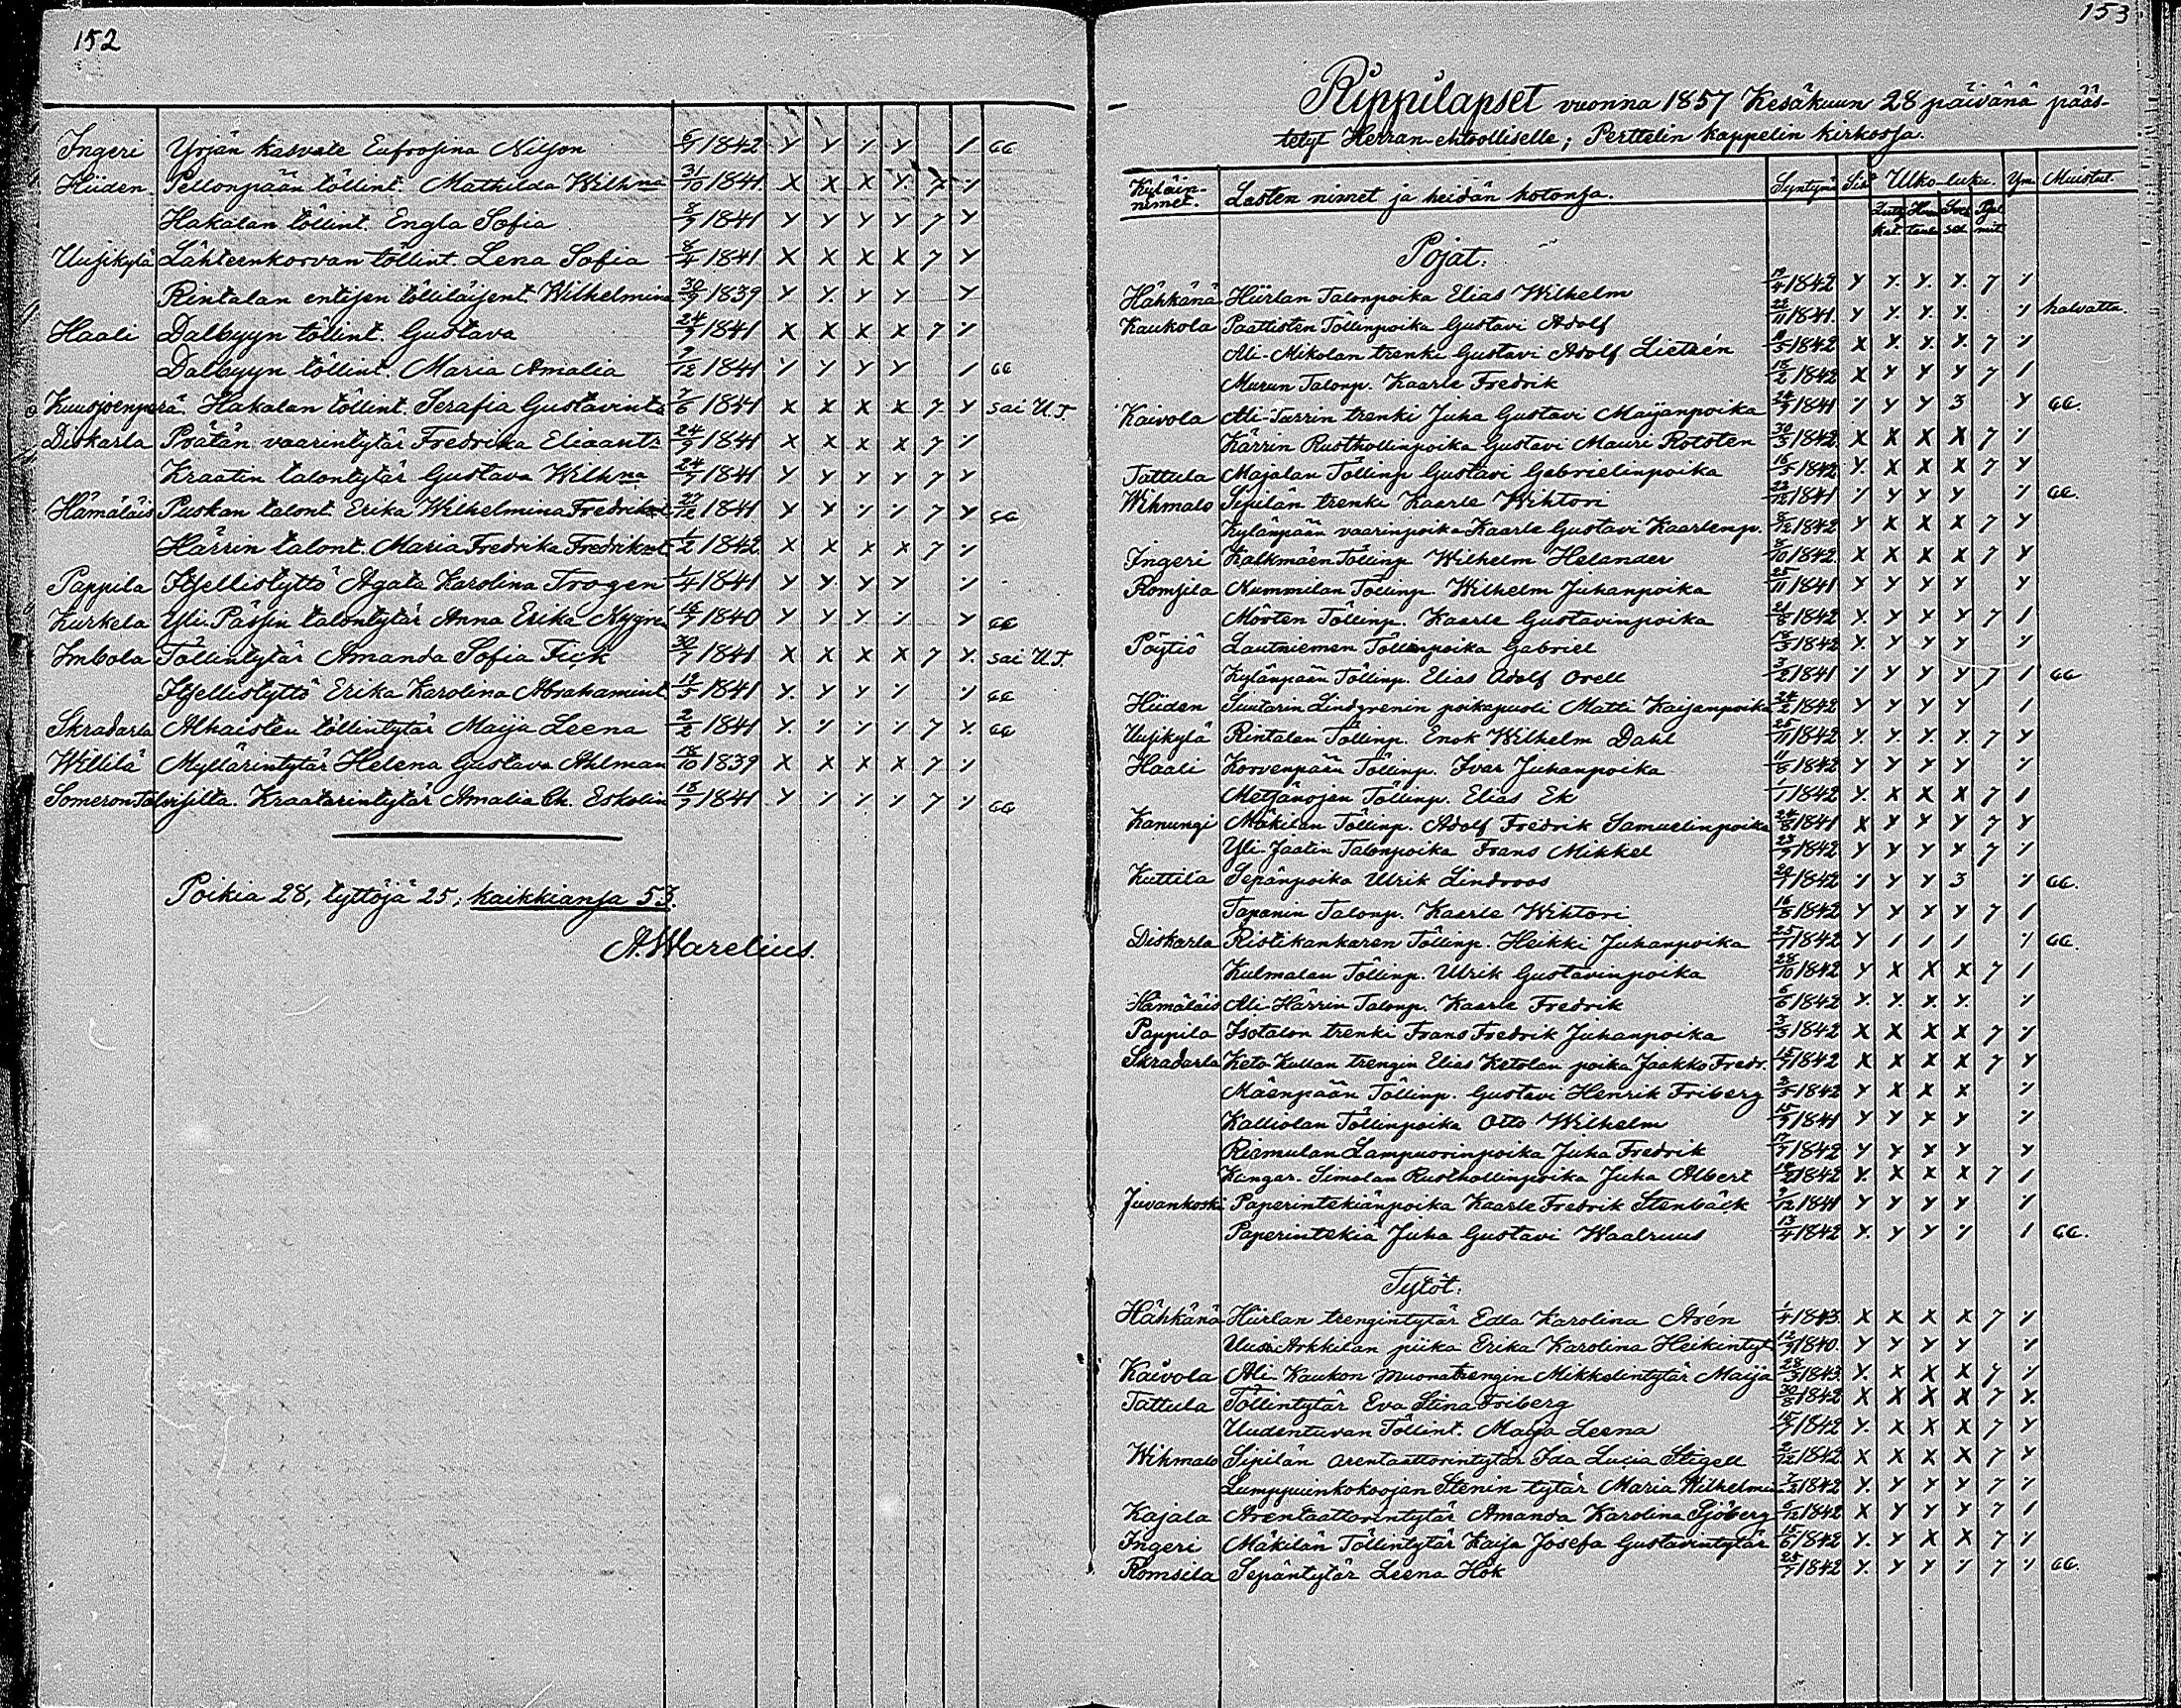 152
Ingeri Yrjän kasvate Eufrosina Nilson 6/9 1842 y y ⁒ y / 66
Hiiden Pellonpään töllint. Mathilda Wilhna 31/10 1841 x x x y. 7 ⁒
Hakalan töllint. Engla Sofia 8/9 1841 y y y y 7 y
Uusikylä Lähteenkorvan töllint. Lena Sofia 8/4 1841 x x x x 7 y
Rintalan entisen tölliläisent. Wilhelmina 30/9 1839 y y. y y y
Haali Dalbyyn töllint. Gustava 24/9 1841 x x x x 7 ⁒
Dalbyyn töllint. Maria Amalia 9/12 1841 y y y y / 66
Kuusjoenperä Hakalan töllint. Serafia Gustavint: 7/6 1841 x x x x 7 y sai U.T.
Diskarla Prätän vaarintytär Fredrika Eliaant: 24/9 1841 x x x x 7 ⁒
Kraatin talontytär Gustava Wilhna 24/9 1841 y y y y 7 y
Hämäläis Puskan talont. Erika Wilhelmina Fredrikint 27/12 1841 y y ⁒ ⁒ 7 y 66
Härrin talont. Maria Fredrika Fredrikint 1/2 1842 x x x x 7 ⁒
Pappila Itsellistyttö Agata Karolina Trogen 1/4 1841 y y y y ⁒
Kurkela Yli-Pässin talontytär Anna Erika Nygren 16/9 1840 y y y ⁒ y 66
Imbola Töllintytär Amanda Sofia Fick 30/7 1841 x x x x 7 y. sai U.T.
Itsellistyttö Erika Karolina Abrahamint 19/5 1841 y. y y ⁒ ⁒ 66
Skradarla Alhaisten töllintytär Maija Leena 2/2 1841 y. ⁒ ⁒ ⁒ 7 y. 66
Willilä Myllärintytär Helena Gustava Ahlman 18/10 1839 x x x x 7 ⁒
Someron Talvisilta. Kraatarintytär Amalia Ch. Eskolin 18/7 1841 y ⁒ ⁒ ⁒ 7 ⁒ 66
Poikia 28, tyttöjä 25; kaikkiansa 53.
A. Warelius.
153
Rippilapset vuonna 1857 Kesäkuun 28 päivänä pääs-
tetyt Herran-ehtoolliselle; Perttelin kappelin kirkossa.
Kyläin-nimet. Lasten nimet ja heidän kotonsa. Syntymä Sis Ulko-luku. Ym. Muistut.
Pojat:
Hähkänä Hiirlan Talonpoika Elias Wilhelm 19/4 1842 y y. y. y. 7 ⁒
Kaukola Paattisten Töllinpoika Gustavi Adolf 22/11 1841. y y. y. y. ⁒ halvattu.
Ali-Mikolan trenki Gustavi Adolf Lietzén 9/5 1842 x y. y. y. 7 ⁒
Murun Talonp. Kaarle Fredrik 15/2 1842 x y y y 7 /
Kaivola Ali-Turrin trenki Juha Gustavi Maijanpoika 24/9 1841 ⁒ y y 3 y 66.
Kärrin Rusthollinpoika Gustavi Mauri Rotsten 30/5 1842 x x x x 7 ⁒
Tattula Majalan Töllinp Gustavi Gabrielinpoika 16/5 1842 y. x x x 7 y
Wihmalo Sipilän trenki Kaarle Wihtori 22/12 1841 ⁒ y y y ⁒ 66.
Kylänpään vaarinpoika Kaarle Gustavi Kaarlenp. 8/12 1842 y x x x 7 y
Ingeri Kalkmäen Töllinp Wilhelm Helander 8/10 1842. x x x x 7 y
Romsila Nummilan Töllinp Wilhelm Juhanpoika 25/11 1841 y y y y y
Mörten Töllinp. Kaarle Gustavinpoika 21/8 1842 y. y y y 7 /
Pöytiö Lautniemen Töllinpoika Gabriel 18/5 1842 y. y y y ⁒
Kylänpään Töllinp. Elias Adolf Orell 3/2 1841 ⁒ y y y 7 / 66
Hiiden Suutarin Lindgrenin poikapuoli Matti Kaijanpoika 24/2 1842 y y y y /
Uusikylä Rintalan Töllinp. Enok Wilhelm Dahl 25/11 1842 y. y. y. y 7 y
Haali Korvenpään Töllinp. Ivar Juhanpoika 11/8 1842 y y y y ⁒
Metsänojen Töllinp. Elias Ek 1/1 1842 y. x x x 7 /
Kanungi Mäkilän Töllinp. Adolf Fredrik Samuelinpoika 24/8 1841 x y y y 7 y
Yli-Jaatin Talonpoika Frans Mikkel 23/9 1842 y y y y 7 ⁒
Kuttila Sepänpoika Ulrik Lindroos 20/7 1842 ⁒ y y 3 ⁒ 66.
Tapanin Talonp. Kaarle Wihtori 16/8 1842 y y y y 7 /
Diskarla Ristikankaren Töllinp. Heikki Juhanpoika 25/7 1842 y / / / ⁒ 66.
Kulmalan Töllinp. Ulrik Gustavinpoika 28/10 1842 y x x x 7 /
Hämäläis Ali-Härrin Talonp. Kaarle Fredrik 6/6 1842 y. y. y. y. ⁒
Pappila Isotalon trenki Frans Fredrik Juhanpoika 3/5 1842 x x x x 7 ⁒
Skradarla Keto-Kullan trengin Elias Ketolan poika Jaakko Fredr. 15/7 1842 x x x x 7 y
Mäenpään Töllinp. Gustavi Henrik Friberg 3/5 1842 y x x x ⁒
Kalliolan Töllinpoika Otto Wilhelm 15/9 1841 y y y y ⁒
Riamulan Lampuorinpoika Juha Fredrik 17/7 1842 y y y y y
Kangar-Simolan Rusthollinpoika Juha Albert 18/2 1842 y. x x x 7 /
Juvankoski Paperintekiänpoika Kaarle Fredrik Stenbäck 9/12 1841 y y y y ⁒
Paperintekiä Juha Gustavi Waalruus 13/4 1842 y. y y ⁒ / 66.
Tytöt:
Hähkänä Hiirlan trengintytär Edla Karolina Arén 1/4 1843. x x x x 7 ⁒
Uusi-Arkkilan piika Erika Karolina Heikintyt 12/9 1840. y y y y ⁒
Kaivola Ali-Kaukon muonatrengin Mikkelintytär Maija 28/3 1843. y. x x x 7 ⁒
Tattula Töllintytär Eva Stina Friberg 30/8 1842 x x x x 7 x.
Uudentuvan Töllint. Maija Leena 15/9 1842 y. x x x 7 y
Wihmalo Sipilän arentaattorintytär Ida Lucia Stigell 2/12 1842 x x x x 7 y
Lumppuinkokoojan Stenin tytär Maria Wilhelmin 7/3 1842 y. y y y 7 ⁒
Kajala Arentaattorintytär Amanda Karolina Sjöberg 6/12 1842 x y y y 7 /
Ingeri Mäkilän Töllintytär Kaija Josefa Gustavintytär 15/6 1842 y. y x x 7 ⁒
Romsila Sepäntytär Leena Hök 25/7 1842 y. y y ⁒ 7 ⁒ 66.